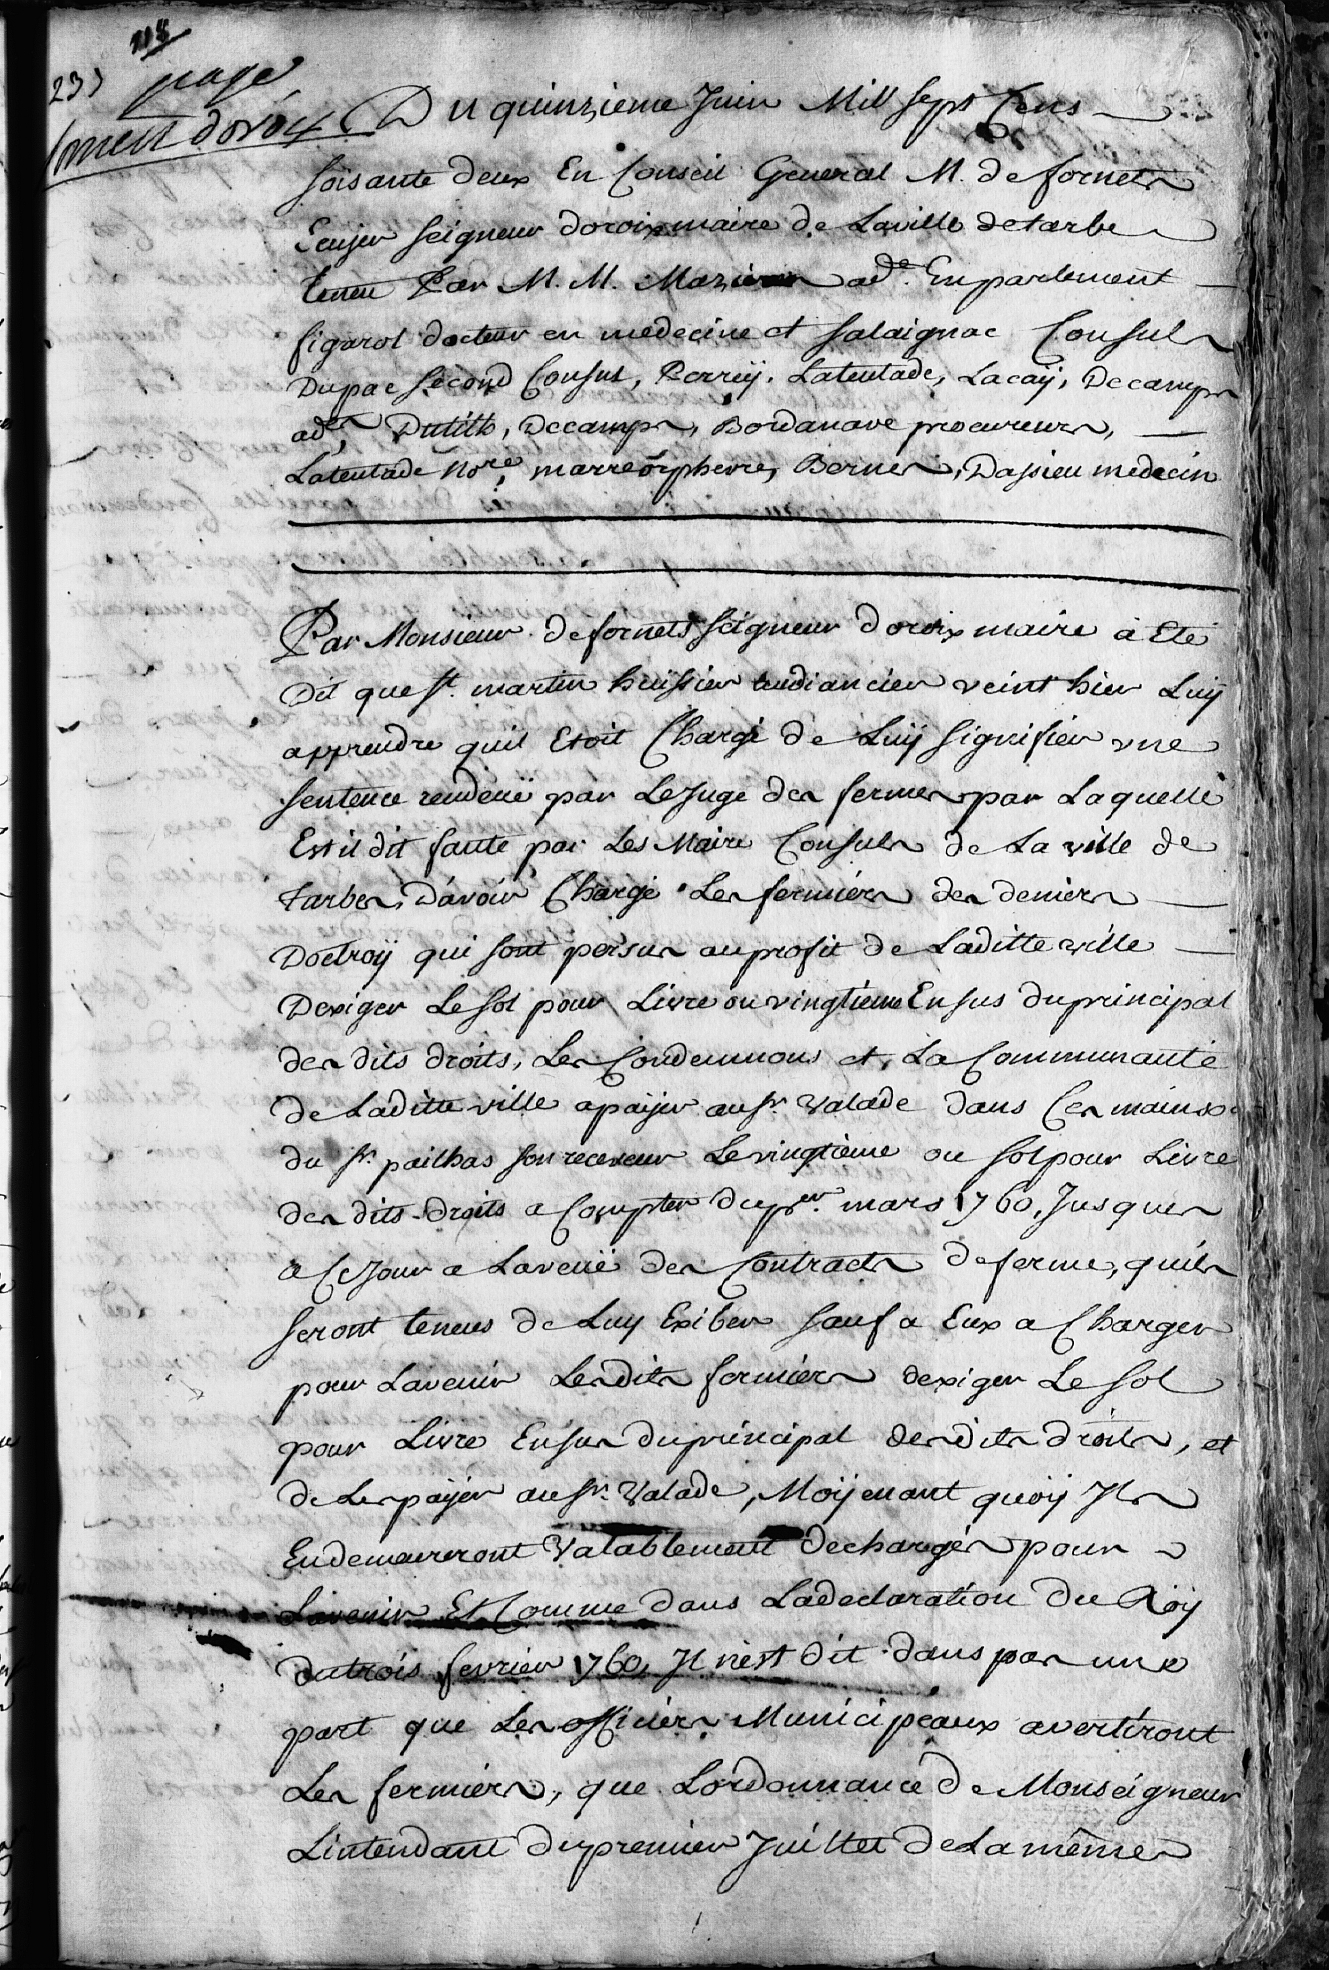 118
233 page
Du quinzieme Juin Mill sept Cens
soisante deux En Conseil General M. de fornets
Ecuyer seigneur doroix maire de Laville de tarbe
tenu Par M. M. adt. En parlement
figarol docteur en medecine et salaignac Consuls
Dupac second Consul, Perrey, Latentade, Lacaÿ, Decamps
adts, Dutilh, Decamps, Bordanave procureurs,
Latentade Nore, marre orphevre, Bernes, Dassieu medecin
Par Monsieur de fornets seigneur doroix maire à Eté
Dit que st. martin huissier audiancier veint hier Luÿ
apprendre quil Etoit Chargé de Luÿ signifier une
sentence rendeüe par Le Juge des fermes par Laquelle
Est il dit faute par Les Maire Consuls de La ville de
tarbes, D'avoir Chargé Les fermiers des deniers
Doctroÿ qui sont persus au profit de Laditte ville
Dexiger Le sol pour Livre ou vingtieme En sus du principal
des dits droits, Les Condemnons et La Communauté
de Laditte ville a païjer au sr. Valade dans Ces mains ou
du sr. pailhas son receveur Le vingtieme ou sol pour Livre
des dits droits a Compter du per. mars 1760, Jusques
a Ce Jour a Laveüe des Contracts de ferme, quils
seront tenus de Luy Exiber sauf a Eux a Charger
pour Lavenir Lesdits fermiers dexiger Le sol
pour Livre En sus du principal desdits droits, et
de Les païjer au sr. Valade, Moÿenant quoÿ Ils
En demeureront Valablement dechargés pour
Lavenir Et Comme dans Ladeclaration du Roÿ
du trois fevrier 1760, Il n'est dit dans pas une
part que Les officiers Municipeaux avertiront
Les fermiers, que Lordonnance de Monseigneur
Lintendant du premier Juillet de La même